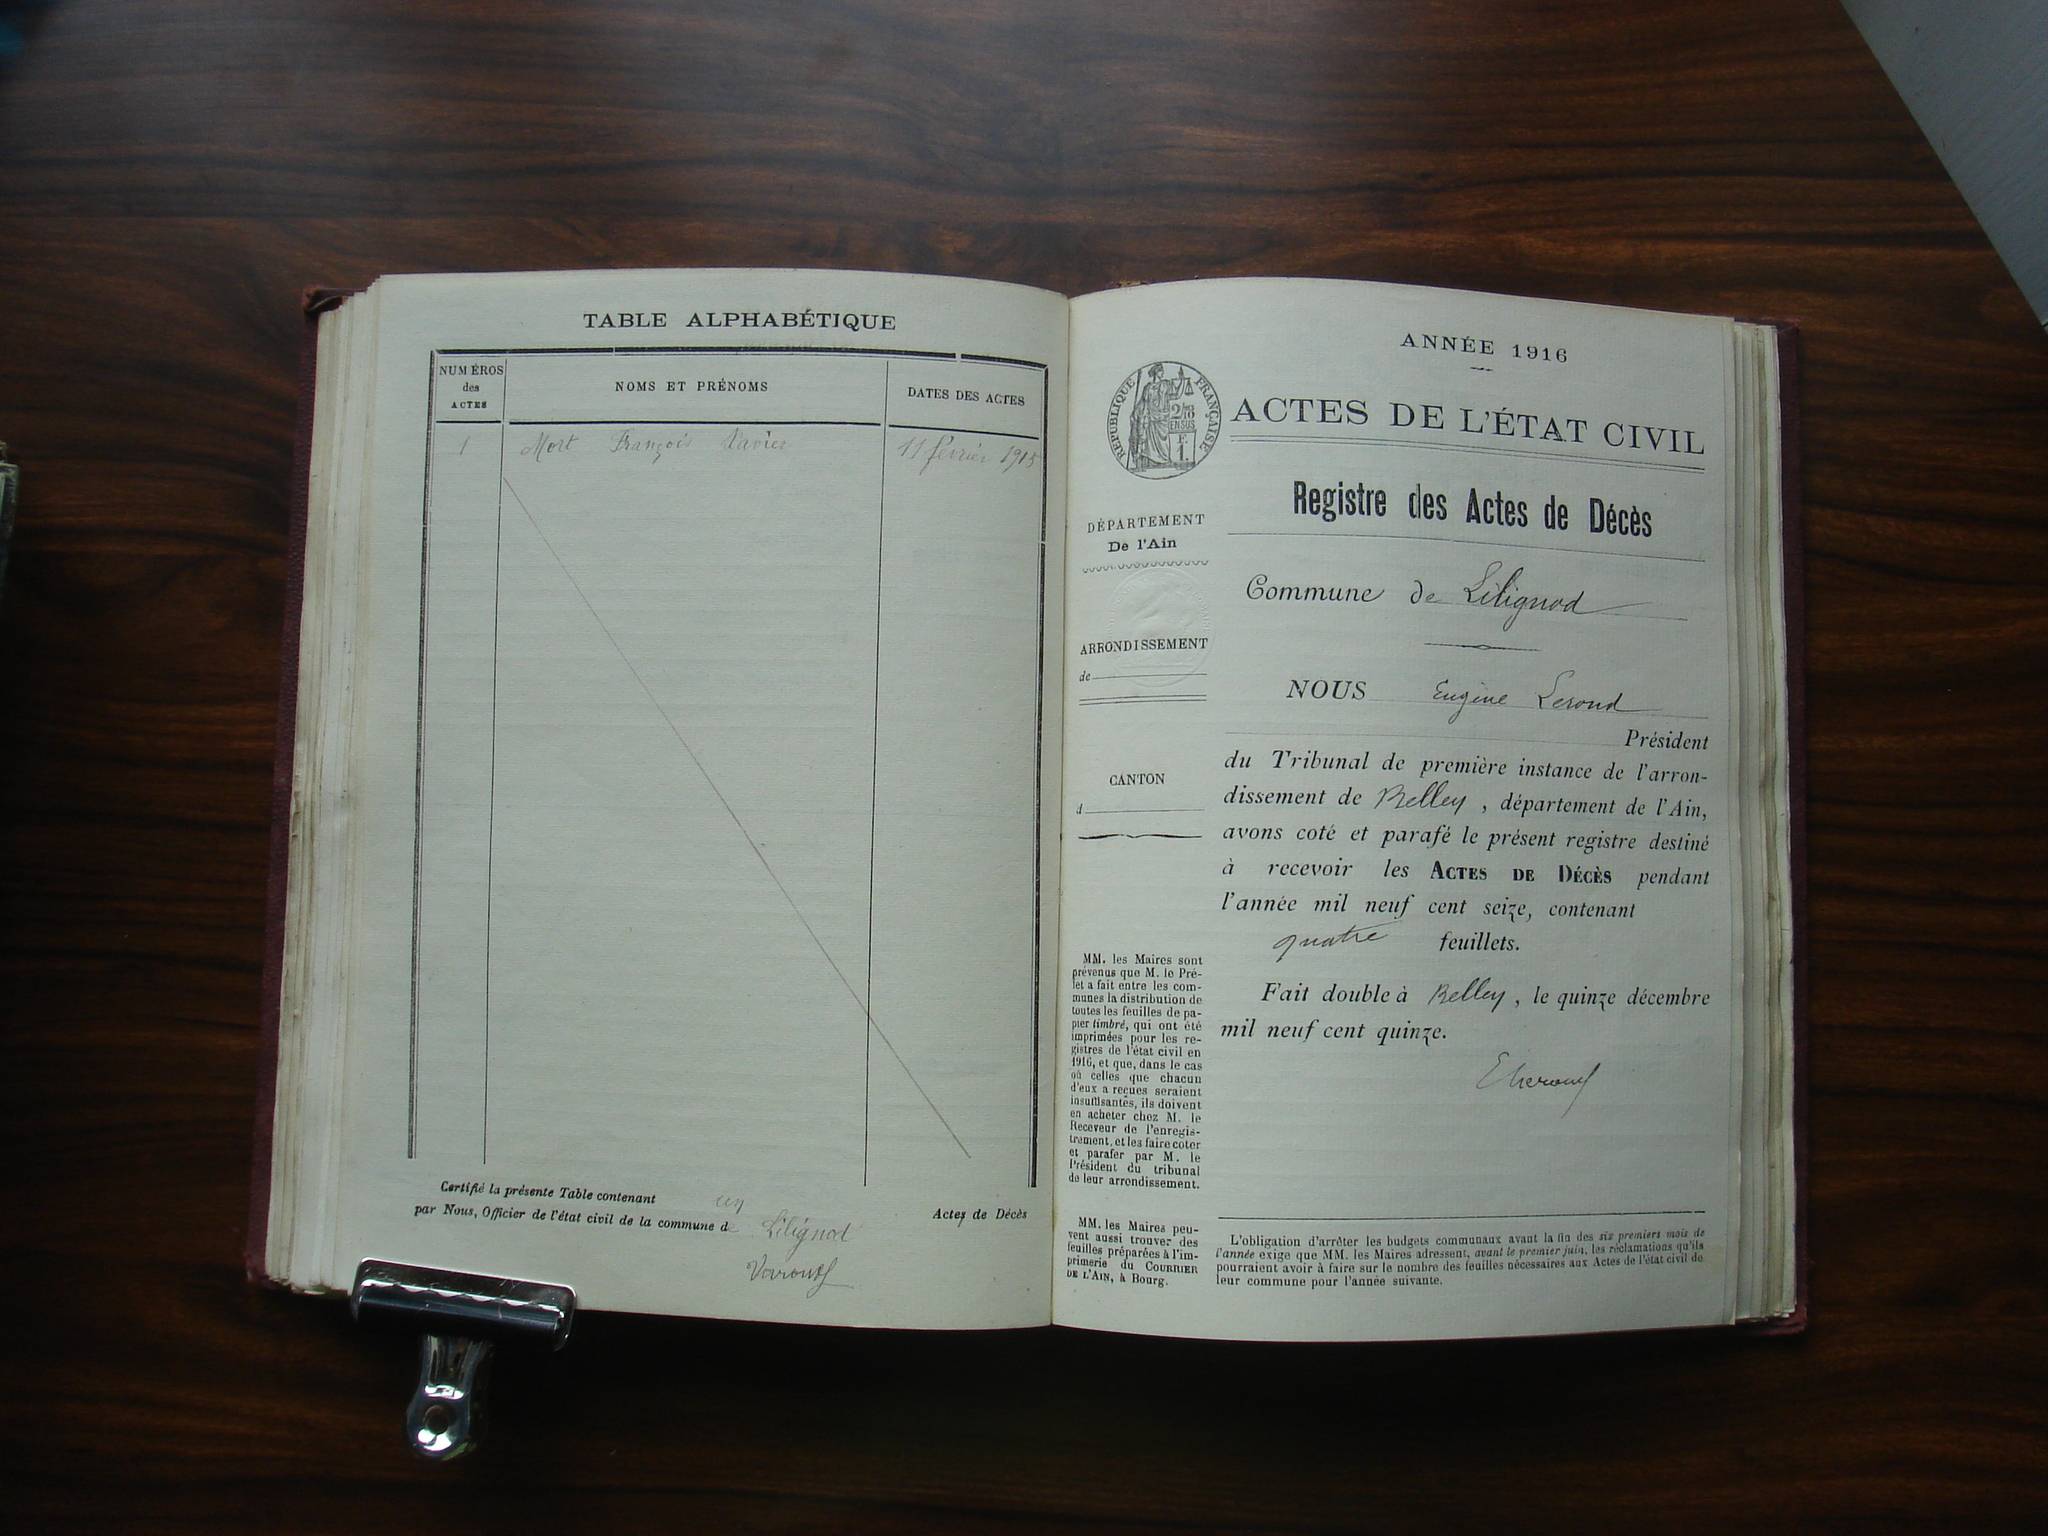 TABLE ALPHABÉTIQUE
NUMÉROS
des
ACTES
NOMS ET PRÉNOMS
DATES DES ACTES
1 Mort François Xavier 11 février 1915
Certifié la présente Table contenant un Actes de Décès
par Nous, Officier de l'état civil de la commune de Lilignod
ANNÉE 1916
RÉPUBLIQUE FRANÇAISE
2/10
EN SUS
F.
1.
ACTES DE L'ÉTAT CIVIL
Registre des Actes de Décès
DÉPARTEMENT
De l'Ain
ARRONDISSEMENT
de
CANTON
d
Commune de Lilignod
NOUS Eugène
Président
du Tribunal de première instance de l'arron-
dissement de Belley, département de l'Ain,
avons coté et parafé le présent registre destiné
à recevoir les ACTES DE DÉCÈS pendant
l'année mil neuf cent seize, contenant
quatre feuillets.
Fait double à Belley, le quinze décembre
mil neuf cent quinze.
MM. les Maires sont
prévenus que M. le Pré-
fet a fait entre les com-
munes la distribution de
toutes les feuilles de pa-
pier timbré, qui ont été
imprimées pour les re-
gistres de l'état civil en
1916, et que, dans le cas
où celles que chacun
d'eux a reçues seraient
insuffisantes, ils doivent
en acheter chez M. le
Receveur de l'enregis-
trement, et les faire coter
et parafer par M. le
Président du tribunal
de leur arrondissement.
MM. les Maires peu-
vent aussi trouver des
feuilles préparées à l'im-
primerie du COURRIER
DE L'AIN, à Bourg.
L'obligation d'arrêter les budgets communaux avant la fin des six premiers mois de
l'année exige que MM. les Maires adressent, avant le premier juin, les réclamations qu'ils
pourraient avoir à faire sur le nombre des feuilles nécessaires aux Actes de l'état civil de
leur commune pour l'année suivante.